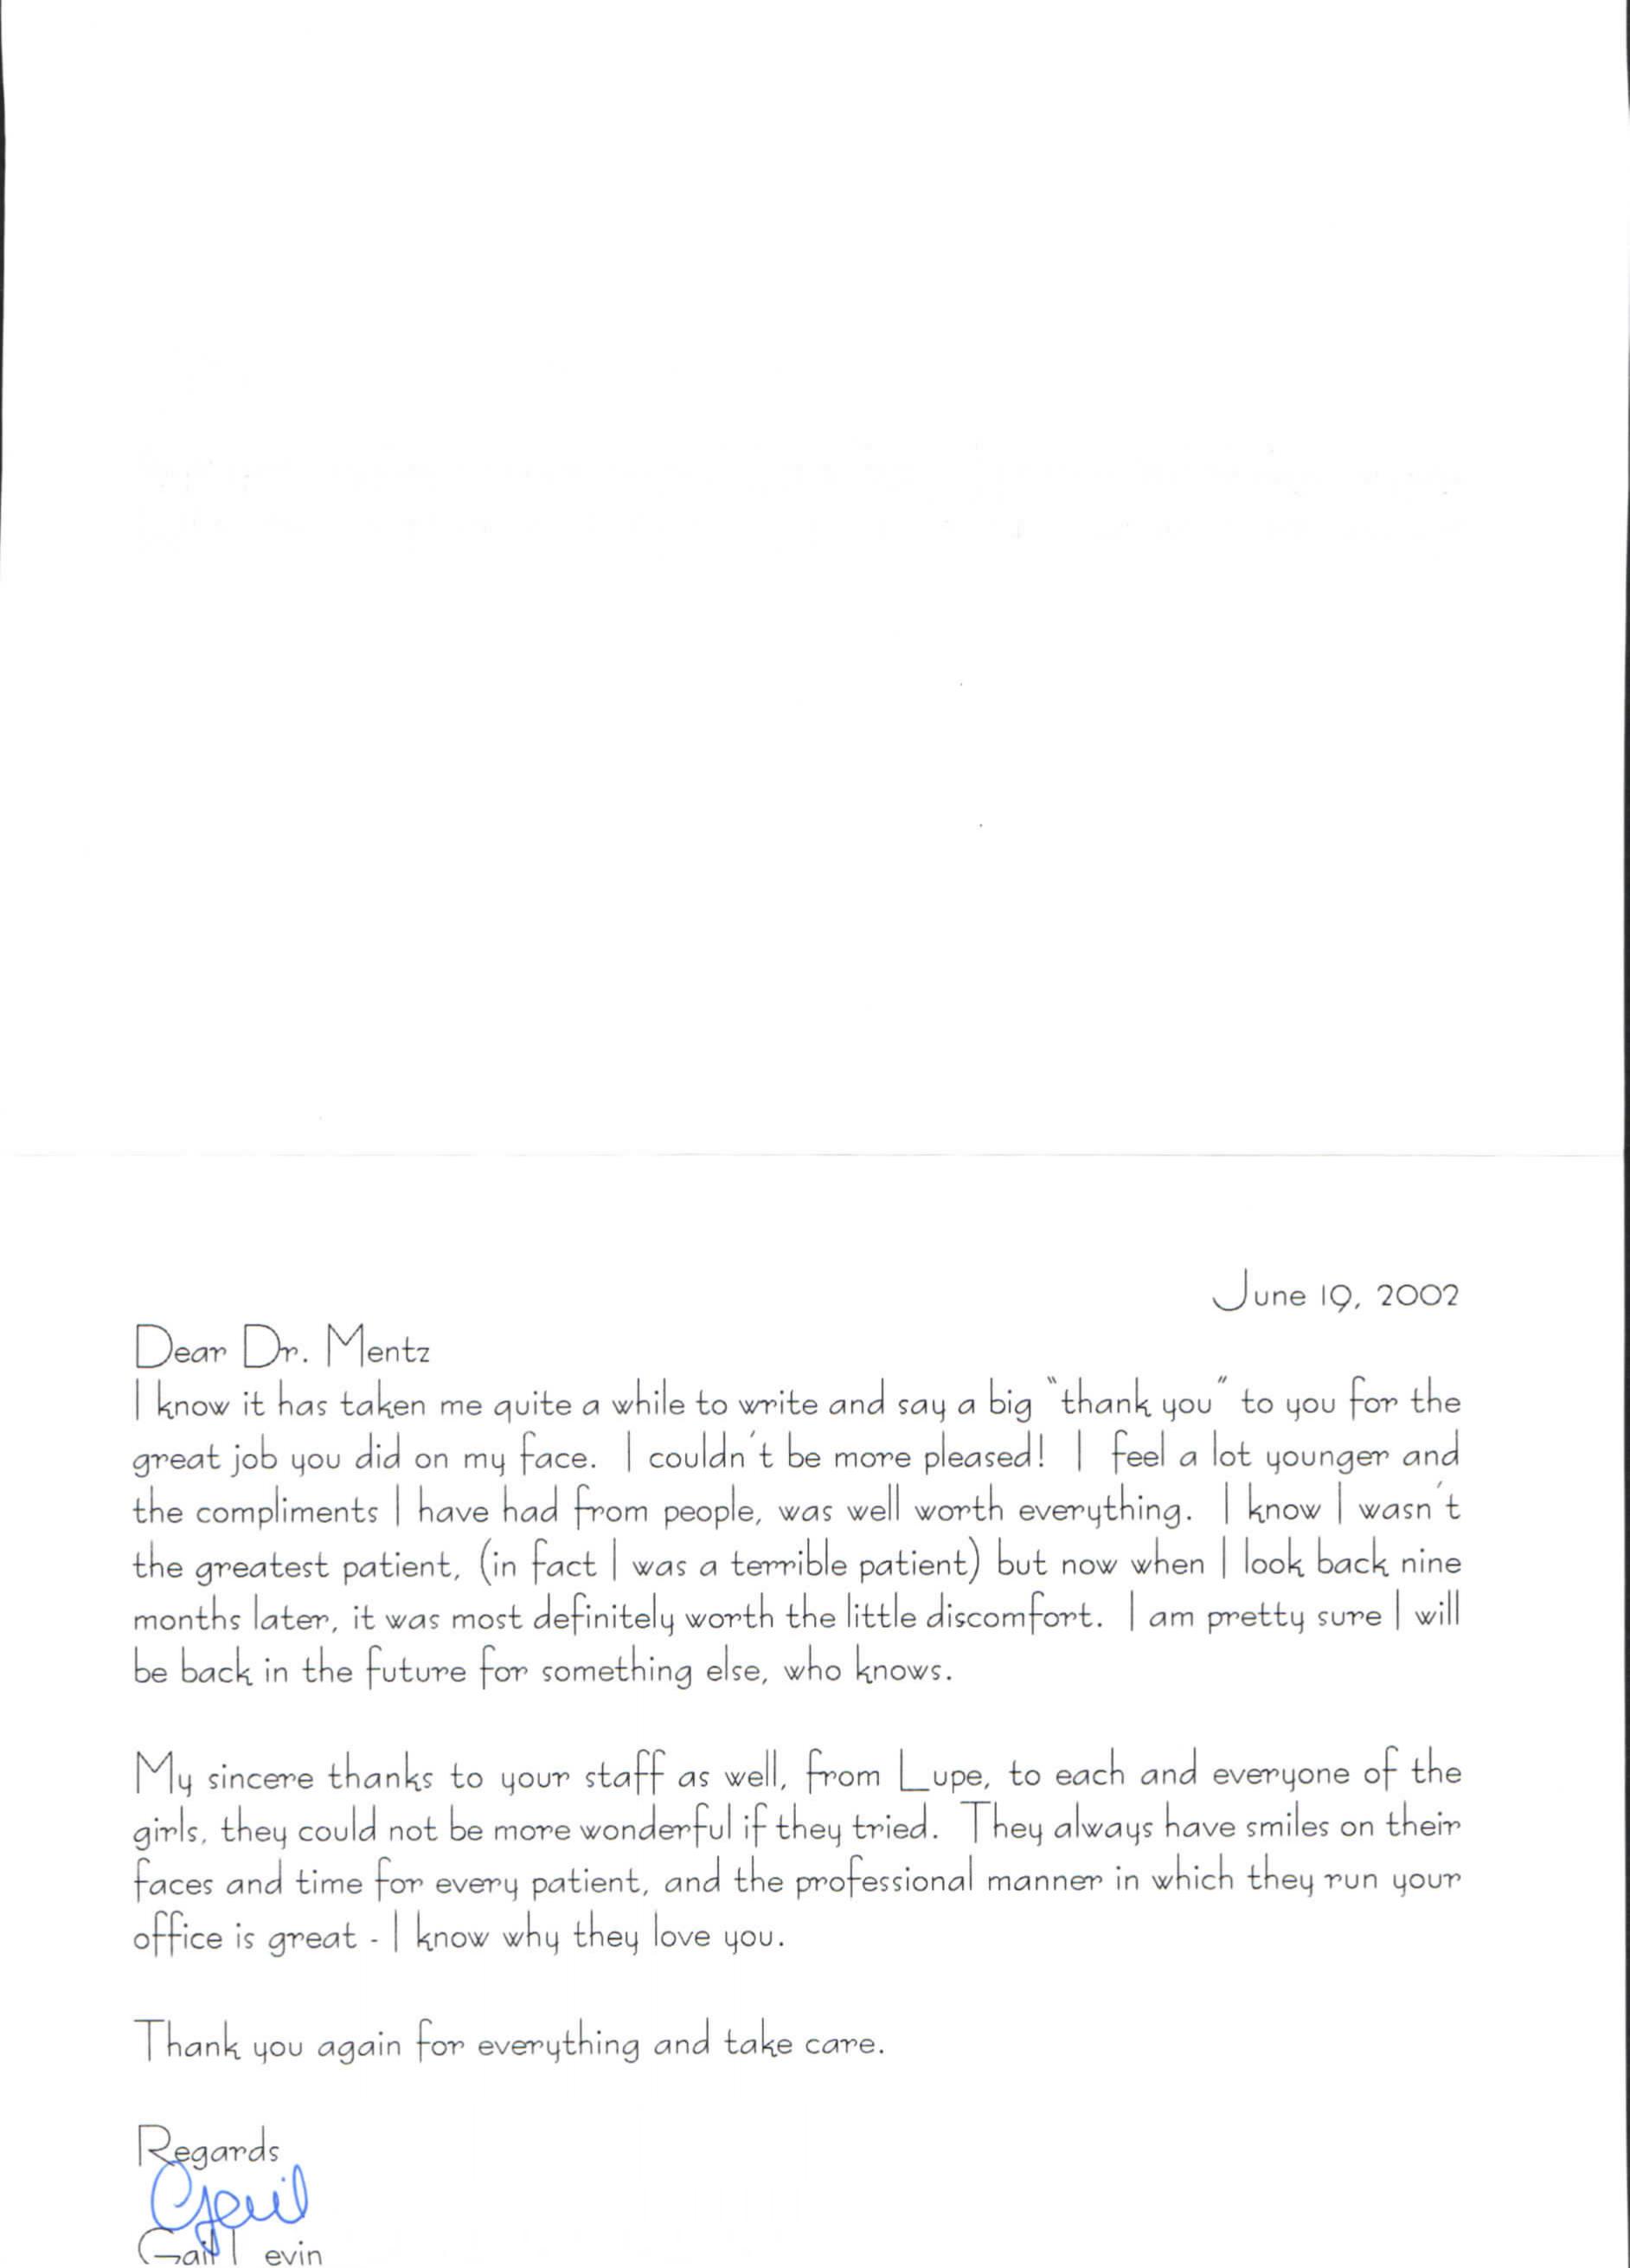 June 19, 2002
Dear Dr. Mentz
I know it has taken me quite a while to write and say a big "thank you" to you for the
great job you did on my face. I couldn't be more pleased! I feel a lot younger and
the compliments I have had from people, was well worth everything. I know I wasn't
the greatest patient, (in fact I was a terrible patient) but now when I look back nine
months later, it was most definitely worth the little discomfort. I am pretty sure I will
be back in the future for something else, who knows.
My sincere thanks to your staff as well, from Lupe, to each and everyone of the
girls, they could not be more wonderful if they tried. They always have smiles on their
faces and time for every patient, and the professional manner in which they run your
office is great - I know why they love you.
Thank you again for everything and take care.
Regards
Gail
Gail Levin